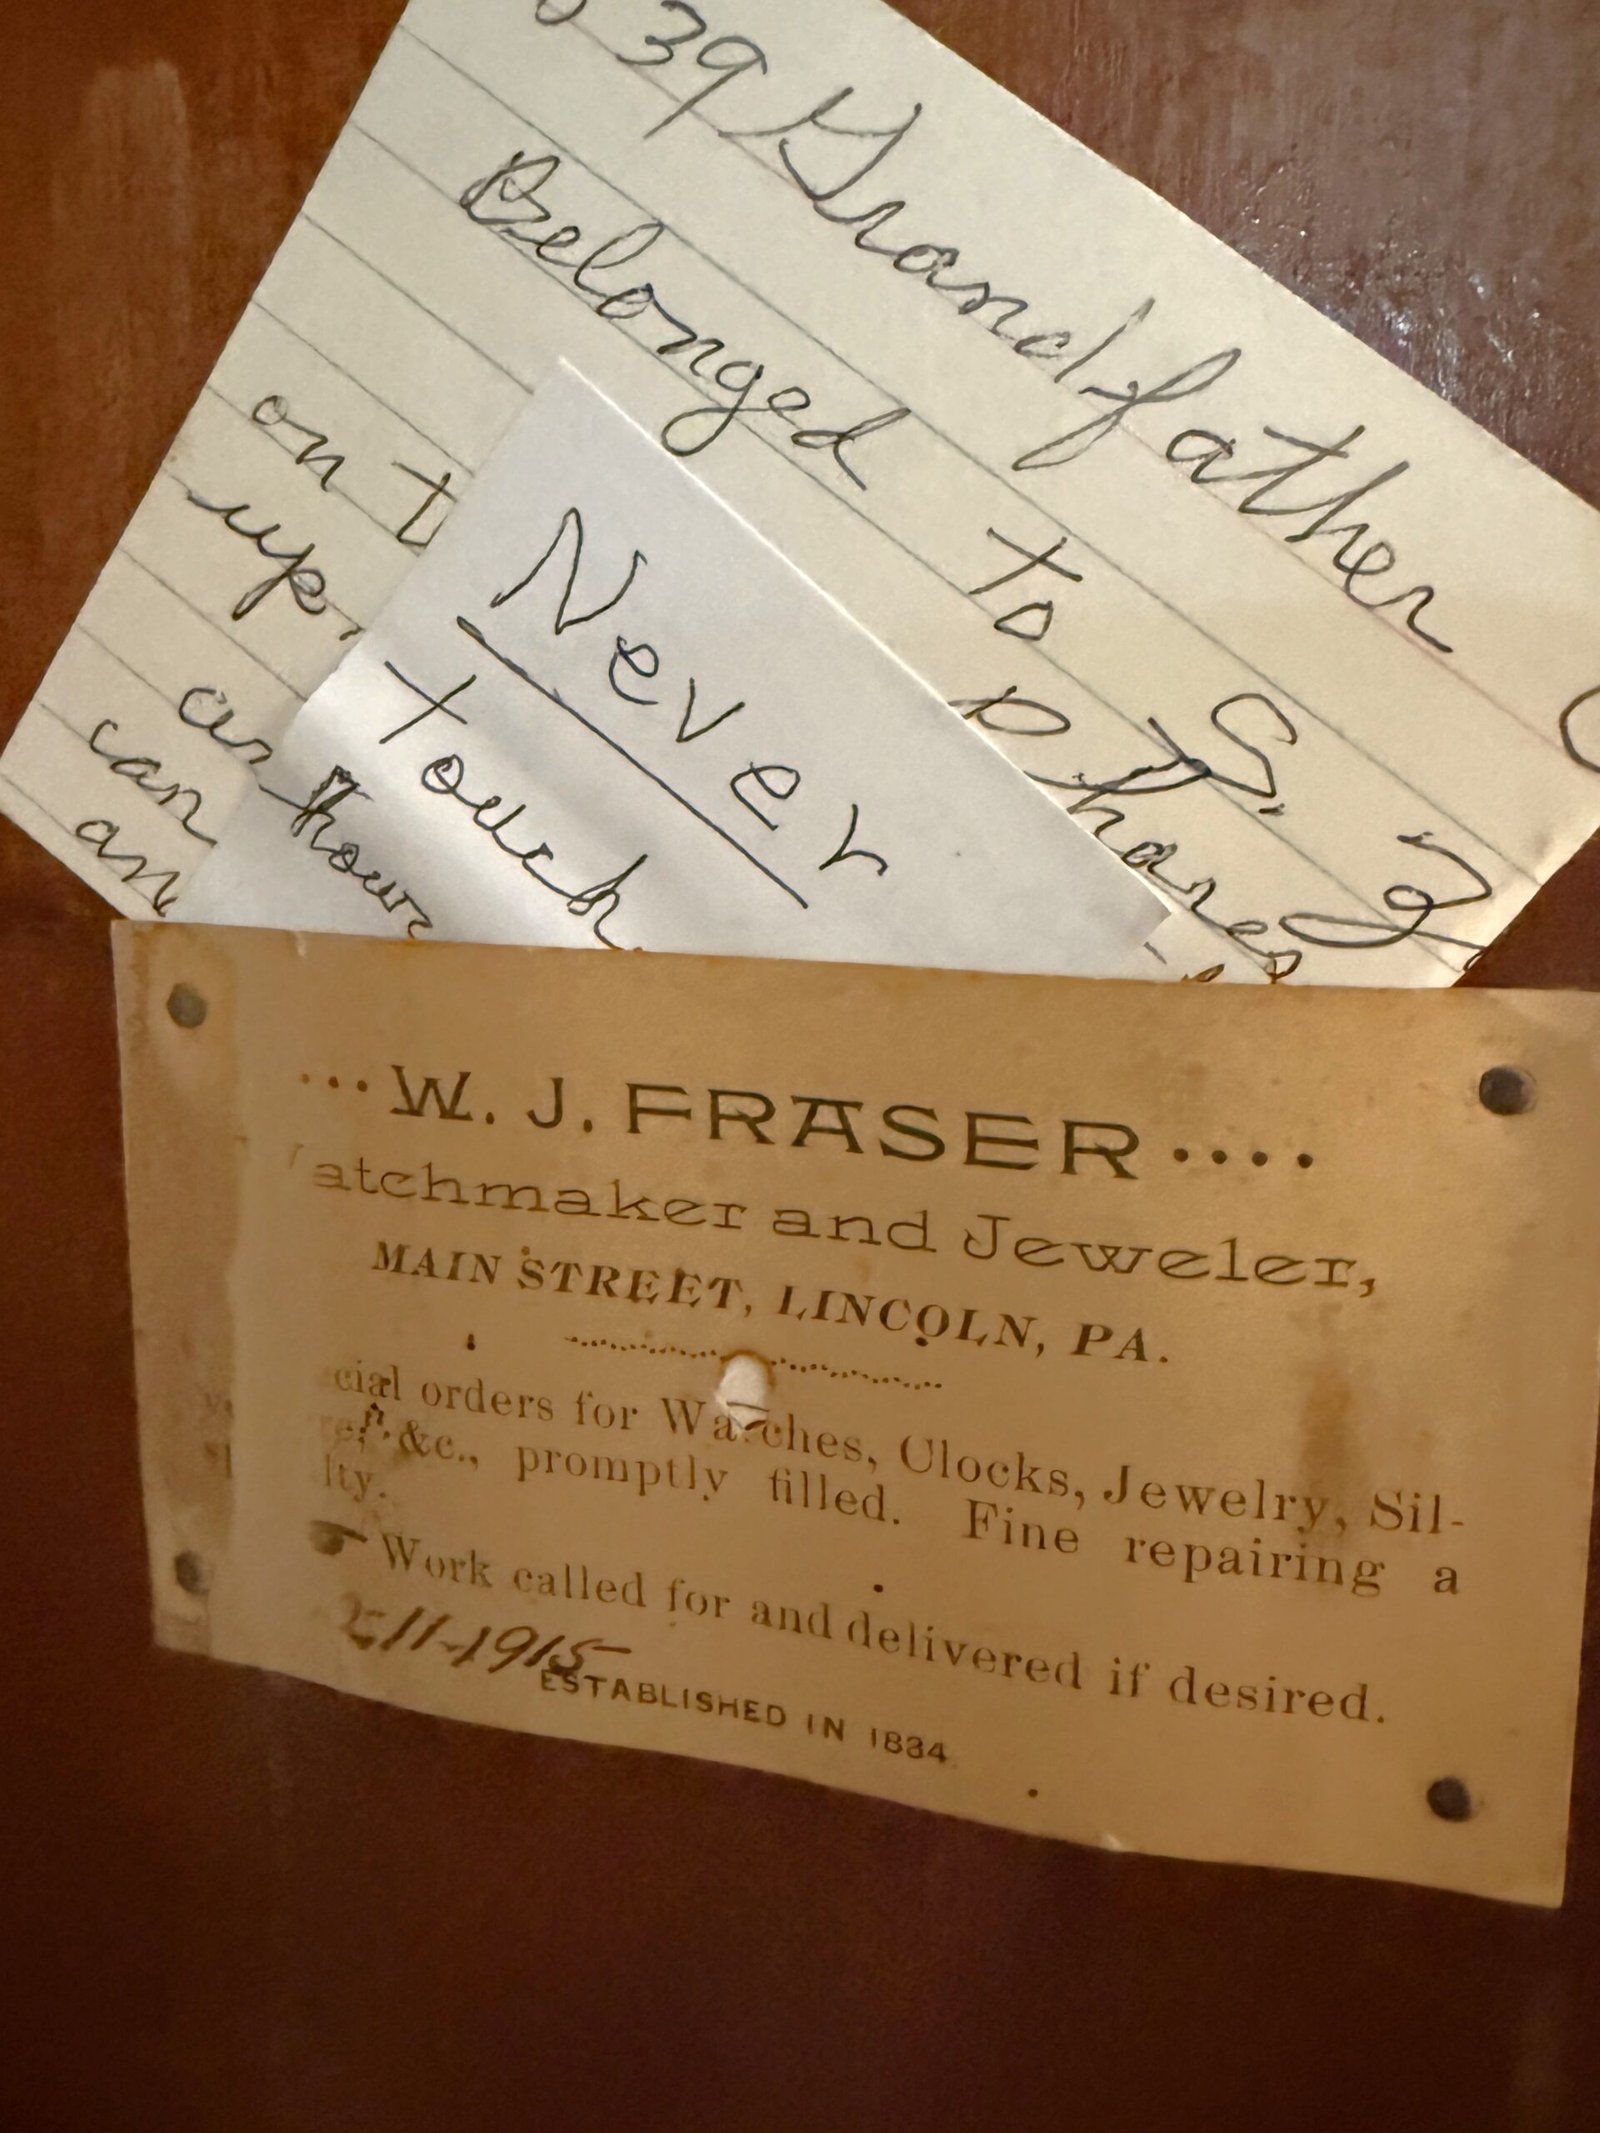 39 Grandfather
Belonged to S. Z.
on
up,
can
Never
touch
hour
...W. J. FRASER....
atchmaker and Jeweler,
MAIN STREET, LINCOLN, PA.
cial orders for Watches, Clocks, Jewelry, Sil-
&c., promptly filled. Fine repairing a
lty.
Work called for and delivered if desired.
11-1915
ESTABLISHED IN 1834